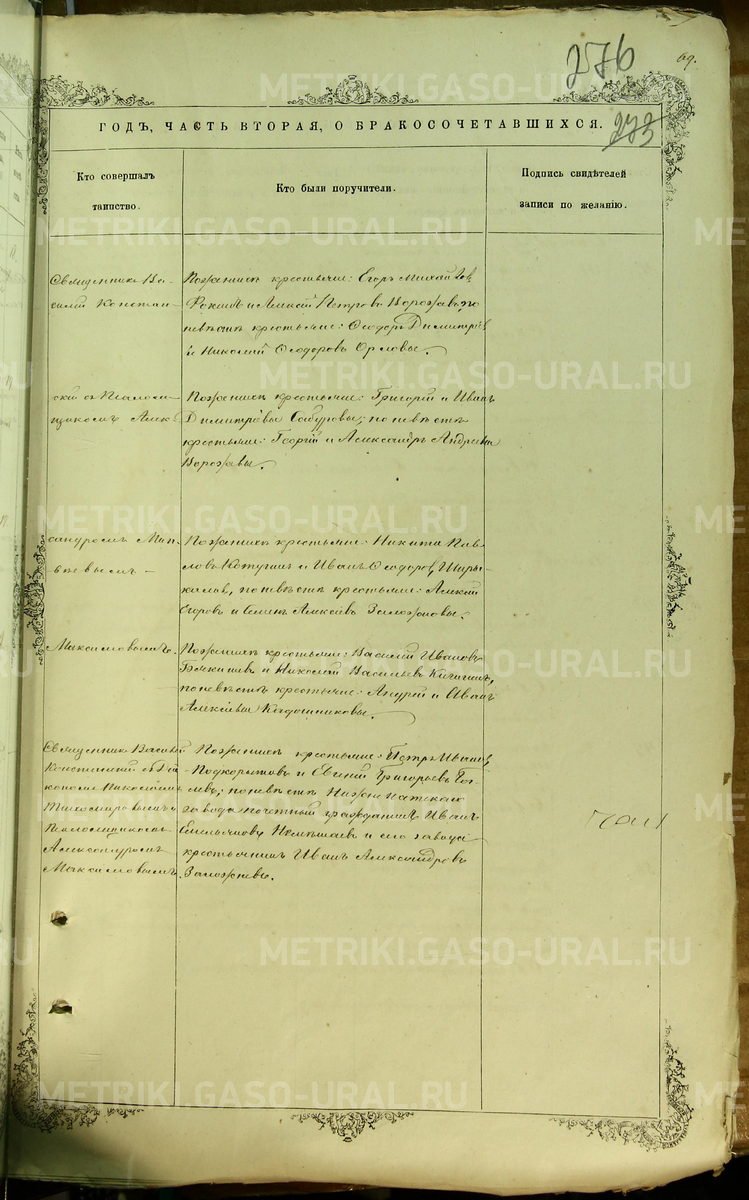 276
69.
273
ГОДЪ, ЧАСТЬ ВТОРАЯ, О БРАКОСОЧЕТАВШИХСЯ.
Кто совершалъ
таинство.
Кто были поручители.
Подпись свидѣтелей
записи по желанію.
Священникъ Ва-
силій Констан-
По женихѣ крестьяне: Егоръ Михайловъ
и Алексѣй Петровъ по
невѣстѣ крестьяне: Ѳеодоръ Димитріев
и Николай Ѳеодоровъ Орловы.
скій съ Псаломщ
щикомъ Алек-
По женихѣ крестьяне: Григорій и Иванъ
Димитріевы Сабуровы; по невѣстѣ
крестьяне: Георгій и Александръ Андреевы
сандромъ
По женихѣ крестьяне: Никита Пав-
ловъ и Иванъ Ѳеодоров
по невѣстѣ крестьяне: Алексѣй
Егоровъ и Алексѣевъ Заложновы.
Максимовымъ.
По женихѣ крестьяне: Василій Ивановъ
и Николай Васильевъ Кичигинъ,
по невѣстѣ крестьяне: Андрей и Иванъ
Алексѣевы Кадошниковы.
Священникъ Василій
Констанскій съ Діа
кономъ Николаемъ
Тихомировымъ и
Псаломщикомъ
Александромъ
Максимовымъ.
По женихѣ крестьяне: Петръ Иванов
Подкорытовъ и Евгеній Григорьевъ
по невѣстѣ
завода почетный гражданинъ Иванъ
Емельяновъ и его завода
крестьянинъ Иванъ Александровъ
METRIKI.GASO-URAL.RU